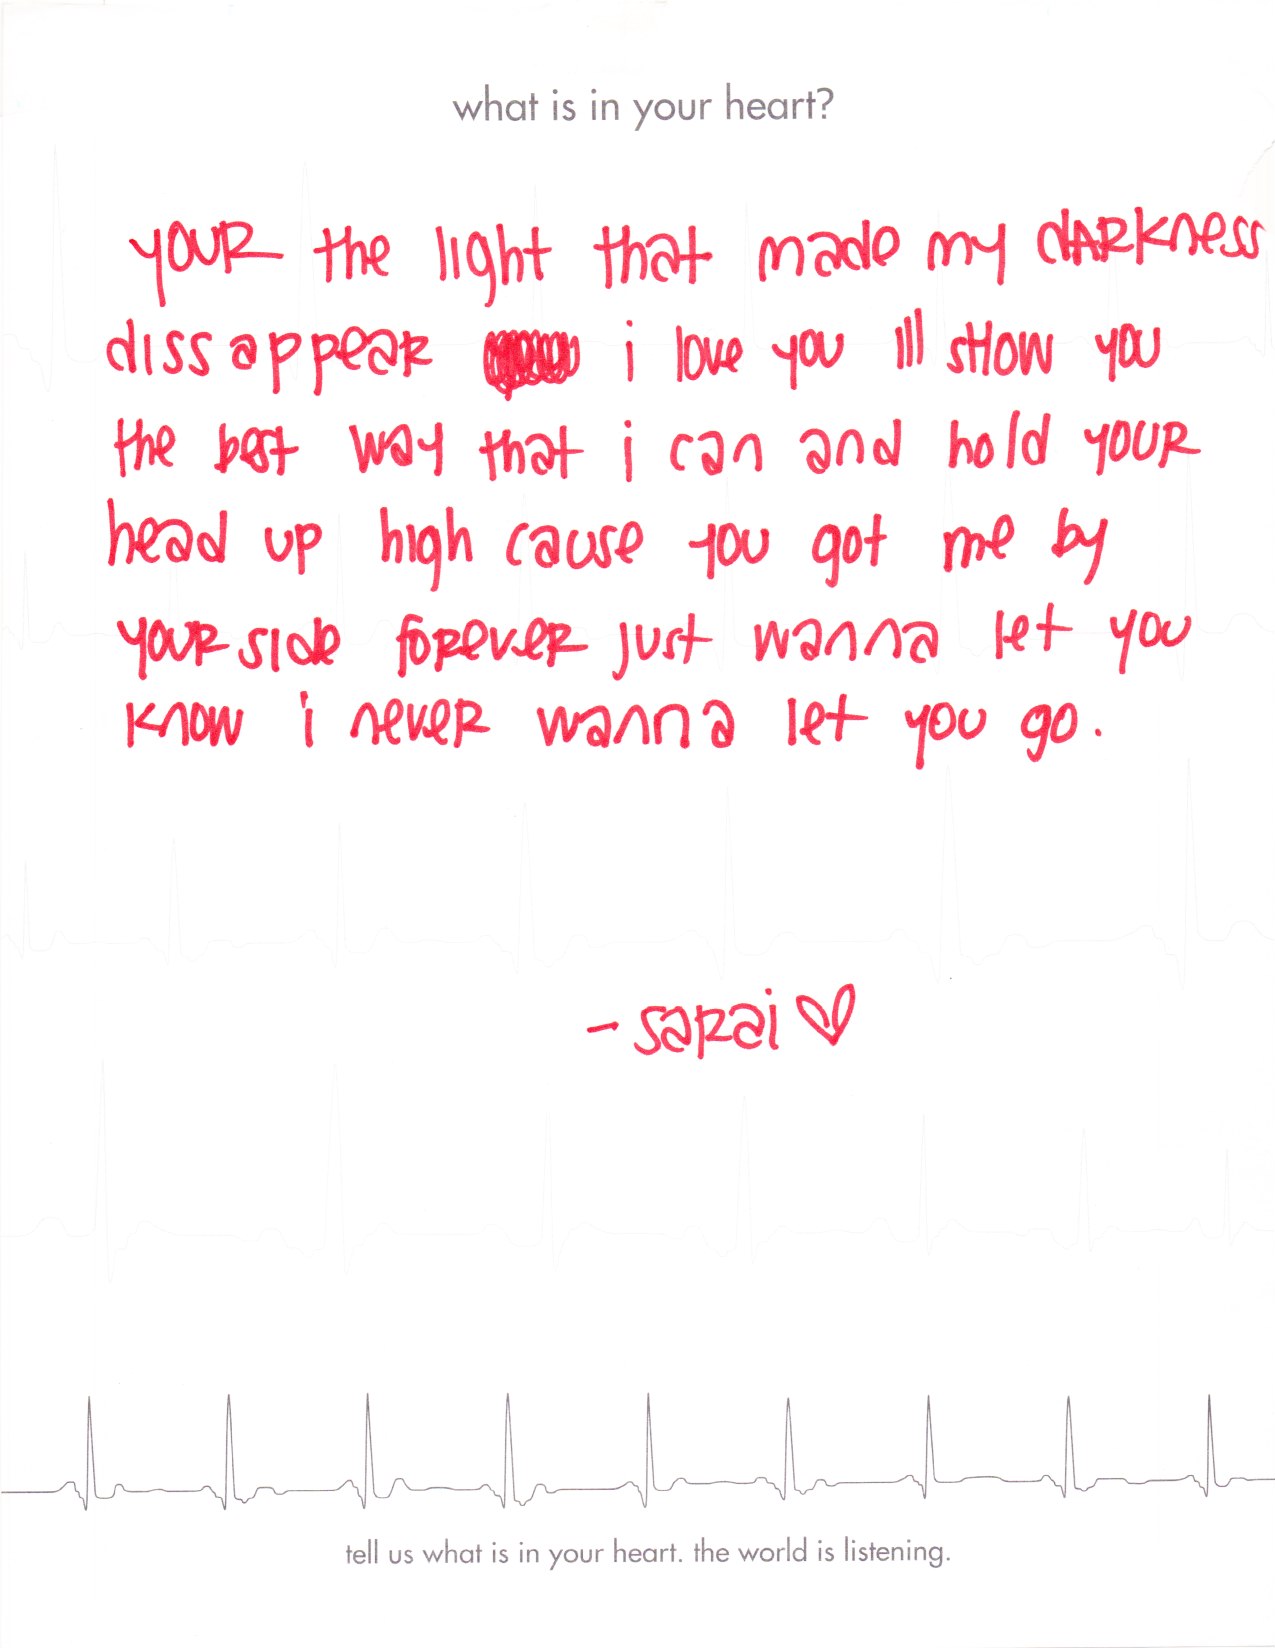 what is in your heart?
yOUR the light that made my dARkness
dissappeaR i love you Ill sHow you
the best way that i can and hold yOUR
head up high cause you got me by
youR side foReveR just wanna let you
know i neveR wanna let you go.
- saRai ♡
tell us what is in your heart. the world is listening.